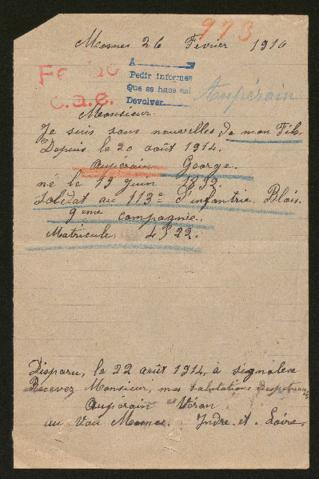 973
Mosnes 26 Février 1916
A
Pedir informes
Que se hace aqui
Devolver
Aupérain
C.a.E.
Monsieur
Je suis sans nouvelles de mon Fils
Depuis le 20 août 1914.
Auperain George.
né le 13 juin 1892
Soldat au 113e d'infantrie Blois.
9eme compagnie.
Matricule 4522.
Disparu, le 22 août 1914, à signaleu
Recevez Monsieur, mes salutations
Auperain Véran
au Vau Mosnes. Indre et Loire